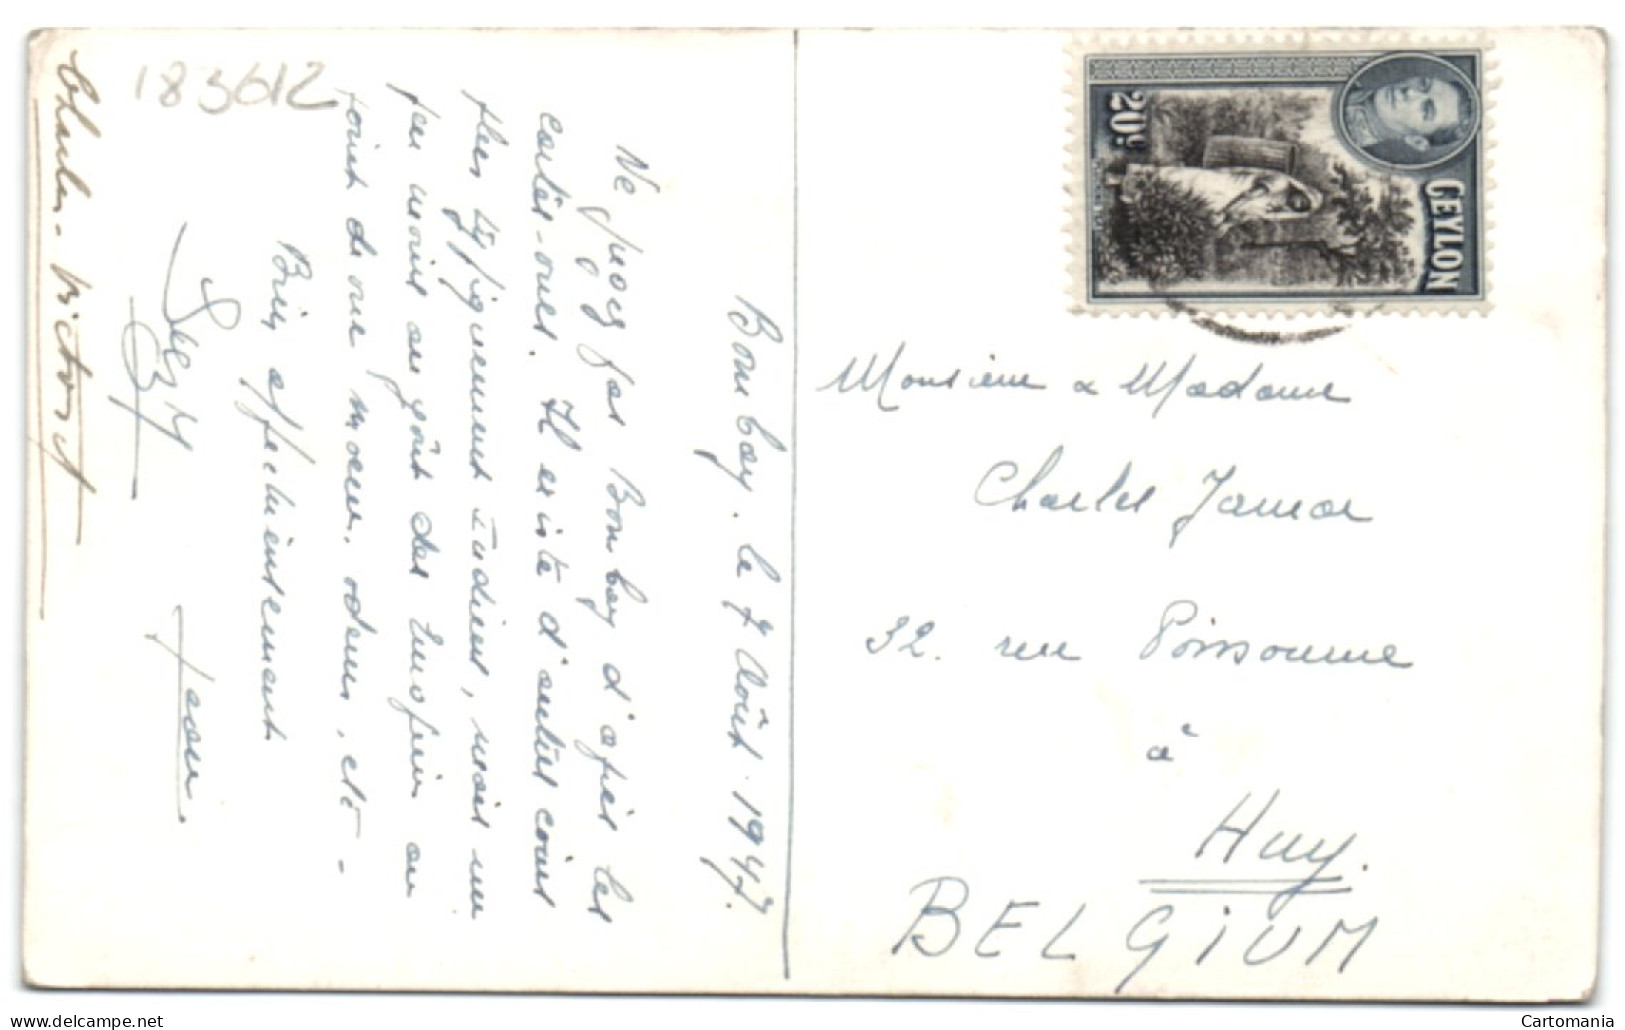 183612
Bombay. le 7 Août. 1947.
Ne jugez pas Bombay d'après les
cartes-vues. Il existe d'autres coins
plus typiquement Indiens, mais un
peu moins au goût des
point de vue moeurs, odeurs, etc-
Bien affectueusement
Jean.
Charles-Victor
CEYLON
20c.
Monsieur & Madame
Charles Jamar
32. rue Poissonne
à
Huy.
BELGIUM
Cartomania